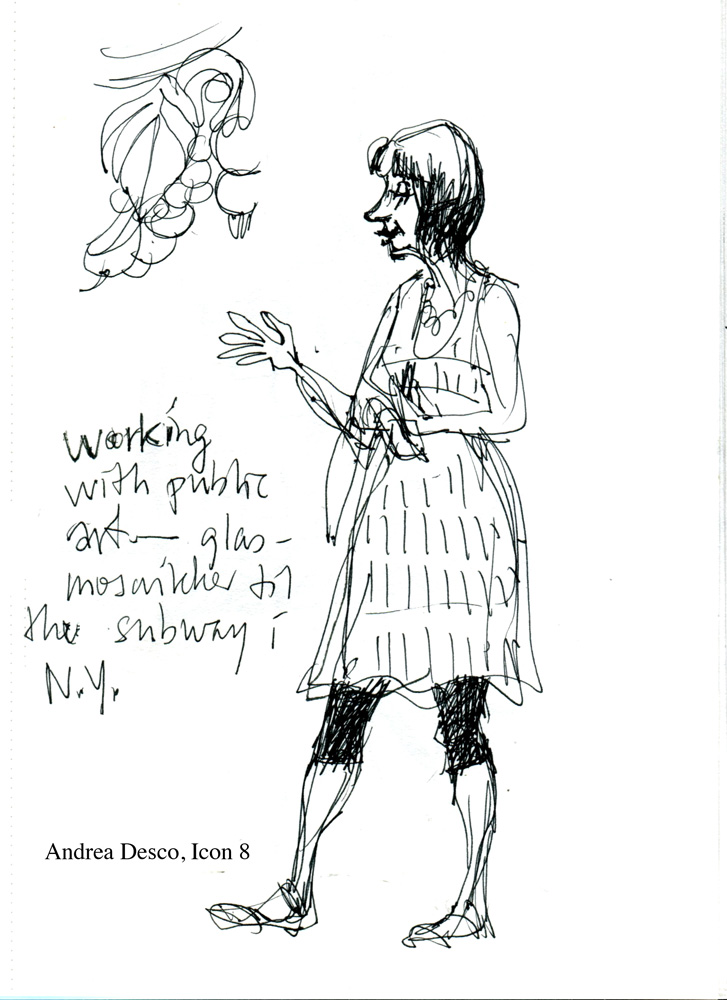 working
with public
art — glas-
mosaikker til
the subway i
N.Y.
Andrea Desco, Icon 8